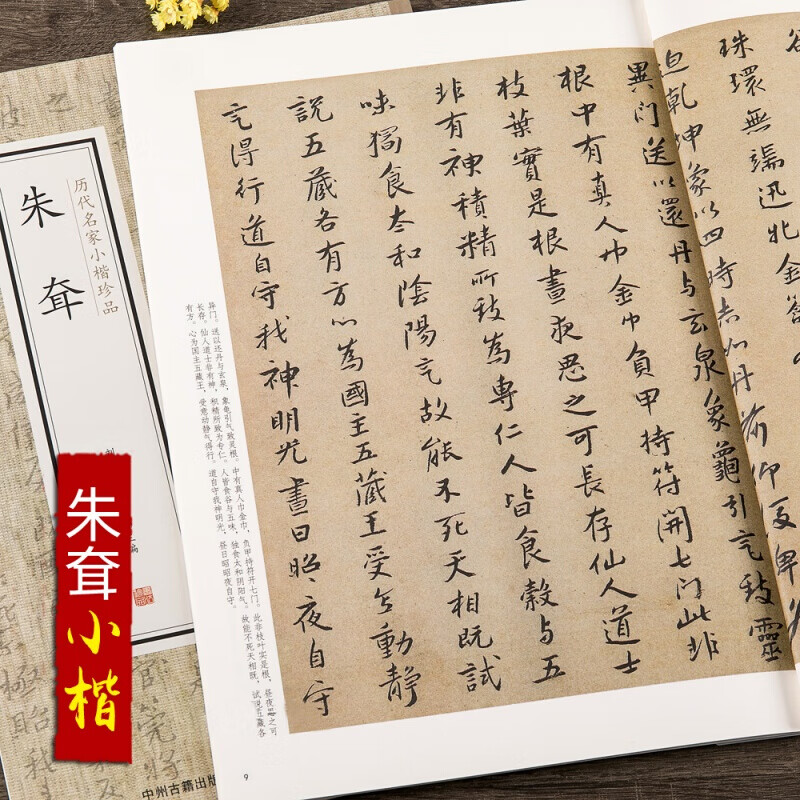 珠環無端迅牝金籥
乾坤象以四時赤如丹前仰後卑
異門送以還丹與玄泉象龜引气致靈
根中有真人巾金巾負甲持符開七門此非
枝葉實是根晝夜思之可長存仙人道士
非有神積精所致為專仁人皆食穀與五
味獨食太和陰陽气故能不死天相既試
說五藏各有方心為國主五藏王受意動靜
气得行道自守我神明光晝日昭昭夜自守
异门。送以还丹与玄泉，象龟引气致灵根。中有真人巾金巾，负甲持符开七门。此非枝叶实是根，昼夜思之可
长存。仙人道士非有神，积精所致为专仁。人皆食谷与五味，独食太和阴阳气。故能不死天相既，试说五藏各
有方。心为国主五藏王，受意动静气得行。道自守我神明光，昼日昭昭夜自守。
9
历代名家小楷珍品
朱耷
中州古籍出版
朱耷小楷